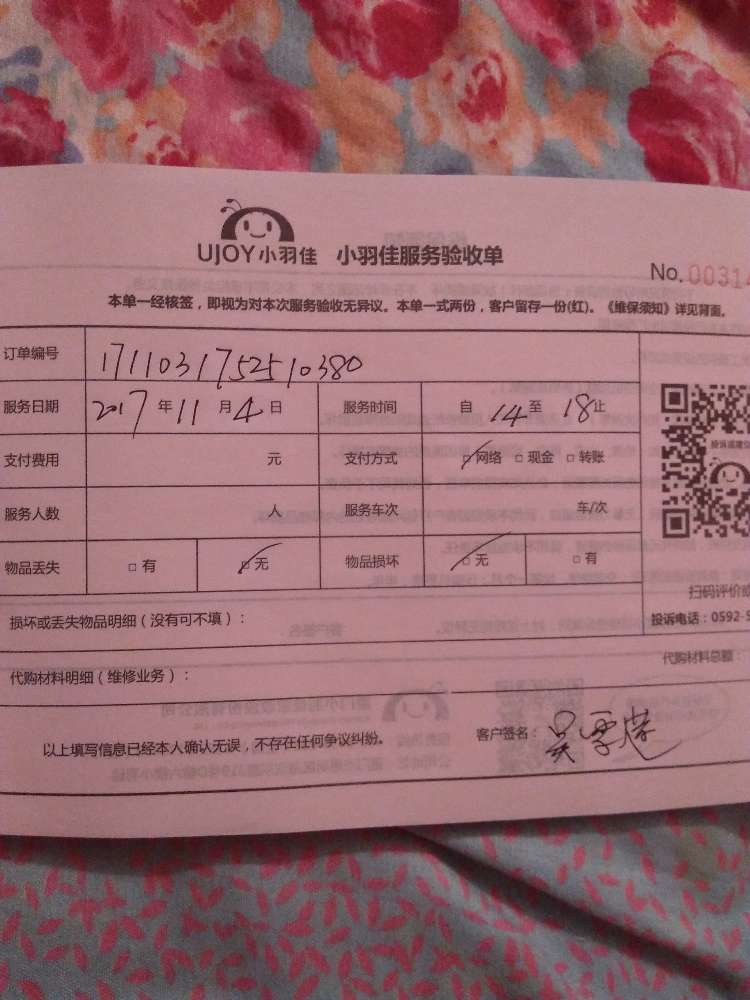 UJOY小羽佳 小羽佳服务验收单
No. 00314
本单一经核签，即视为对本次服务验收无异议。本单一式两份，客户留存一份(红)。《维保须知》详见背面。
订单编号 1711031752510380
服务日期 2017年11月4日 服务时间 自14至18止
支付费用 元 支付方式 □网络 □现金 □转账
投诉或建议
服务人数 人 服务车次 车/次
物品丢失 □有 □无 物品损坏 □无 □有
扫码评价或
损坏或丢失物品明细（没有可不填）：
投诉电话：0592-5
代购材料明细（维修业务）：
代购材料总额：
以上填写信息已经本人确认无误，不存在任何争议纠纷。
客户签名：吴雪